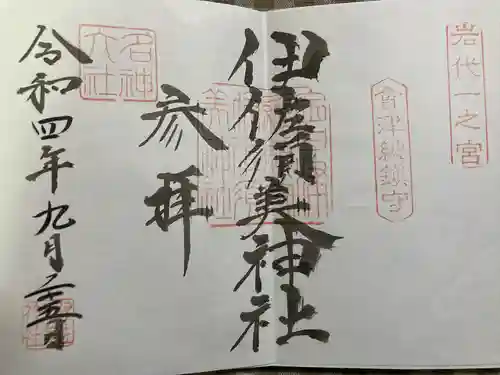 岩代一之宮
會津総鎮守
伊佐須美神社
参拝
名神大社
令和四年九月二十五日